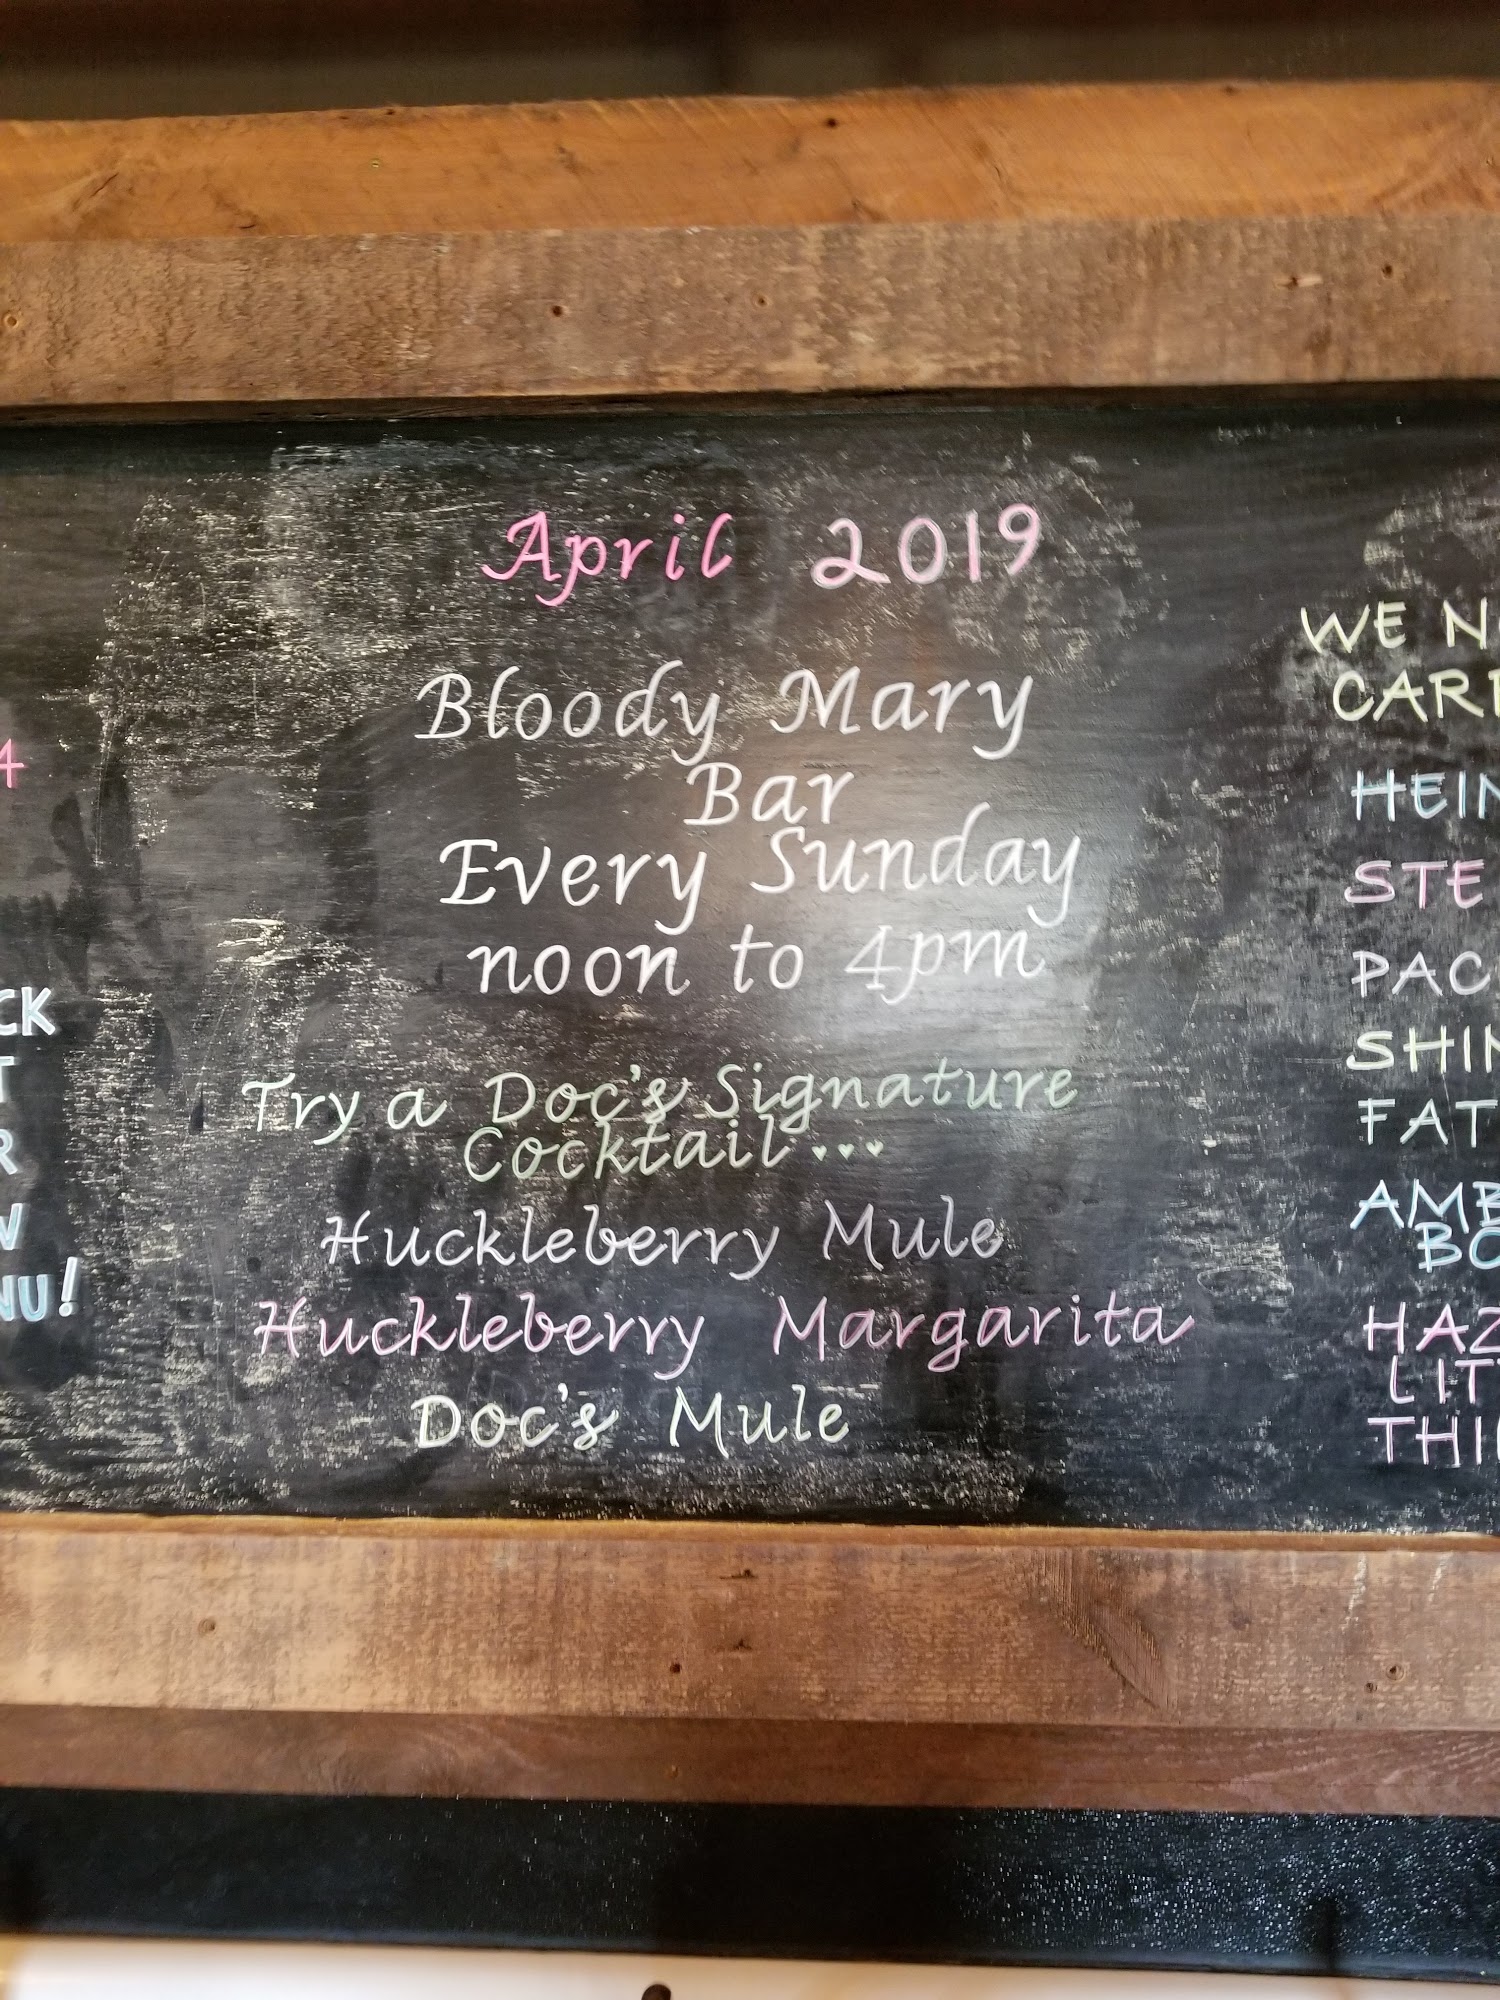 April 2019
Bloody Mary
Bar
Every Sunday
noon to 4pm
Try a Doc's Signature
Cocktail...
Huckleberry Mule
Huckleberry Margarita
Doc's Mule
4
CK
T
R
W
NU!
WE
CAR
HEIN
STE
PAC
SHIN
FAT
AMB
BO
HAZ
LIT
THI